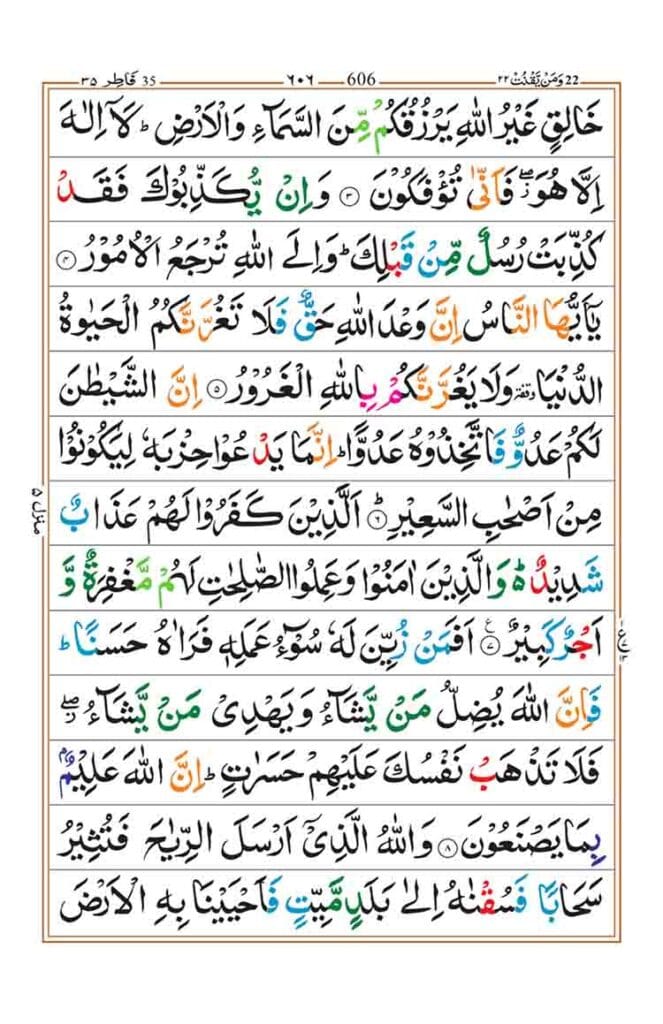 22 وَمَنْ يَّقْنُتْ ٢٢ 606 ٦٠٦ 35 فَاطِر ٣٥
خَالِقٍ غَيْرُ اللّٰهِ يَرْزُقُكُمْ مِّنَ السَّمَآءِ وَالْاَرْضِ ؕ لَآ اِلٰهَ
اِلَّا هُوَ ۖ فَاَنّٰى تُؤْفَكُوْنَ ۝۳ وَاِنْ يُّكَذِّبُوْكَ فَقَدْ
كُذِّبَتْ رُسُلٌ مِّنْ قَبْلِكَ ؕ وَاِلَى اللّٰهِ تُرْجَعُ الْاُمُوْرُ ۝۴
يٰٓاَيُّهَا النَّاسُ اِنَّ وَعْدَ اللّٰهِ حَقٌّ فَلَا تَغُرَّنَّكُمُ الْحَيٰوةُ
الدُّنْيَا ۥ وقفة وَلَا يَغُرَّنَّكُمْ بِاللّٰهِ الْغَرُوْرُ ۝۵ اِنَّ الشَّيْطٰنَ
لَكُمْ عَدُوٌّ فَاتَّخِذُوْهُ عَدُوًّا ؕ اِنَّمَا يَدْعُوْا حِزْبَهٗ لِيَكُوْنُوْا
مِنْ اَصْحٰبِ السَّعِيْرِ ۝۶ؕ اَلَّذِيْنَ كَفَرُوْا لَهُمْ عَذَابٌ
شَدِيْدٌ ۬ؕ وَالَّذِيْنَ اٰمَنُوْا وَعَمِلُوا الصّٰلِحٰتِ لَهُمْ مَّغْفِرَةٌ وَّ
اَجْرٌ كَبِيْرٌ ۝۷ۧ اَفَمَنْ زُيِّنَ لَهٗ سُوْٓءُ عَمَلِهٖ فَرَاٰهُ حَسَنًا ؕ
فَاِنَّ اللّٰهَ يُضِلُّ مَنْ يَّشَآءُ وَيَهْدِيْ مَنْ يَّشَآءُ ۖ
فَلَا تَذْهَبْ نَفْسُكَ عَلَيْهِمْ حَسَرٰتٍ ؕ اِنَّ اللّٰهَ عَلِيْمٌۢ
بِمَا يَصْنَعُوْنَ ۝۸ وَاللّٰهُ الَّذِيْٓ اَرْسَلَ الرِّيٰحَ فَتُثِيْرُ
سَحَابًا فَسُقْنٰهُ اِلٰى بَلَدٍ مَّيِّتٍ فَاَحْيَيْنَا بِهِ الْاَرْضَ
منزل ۵